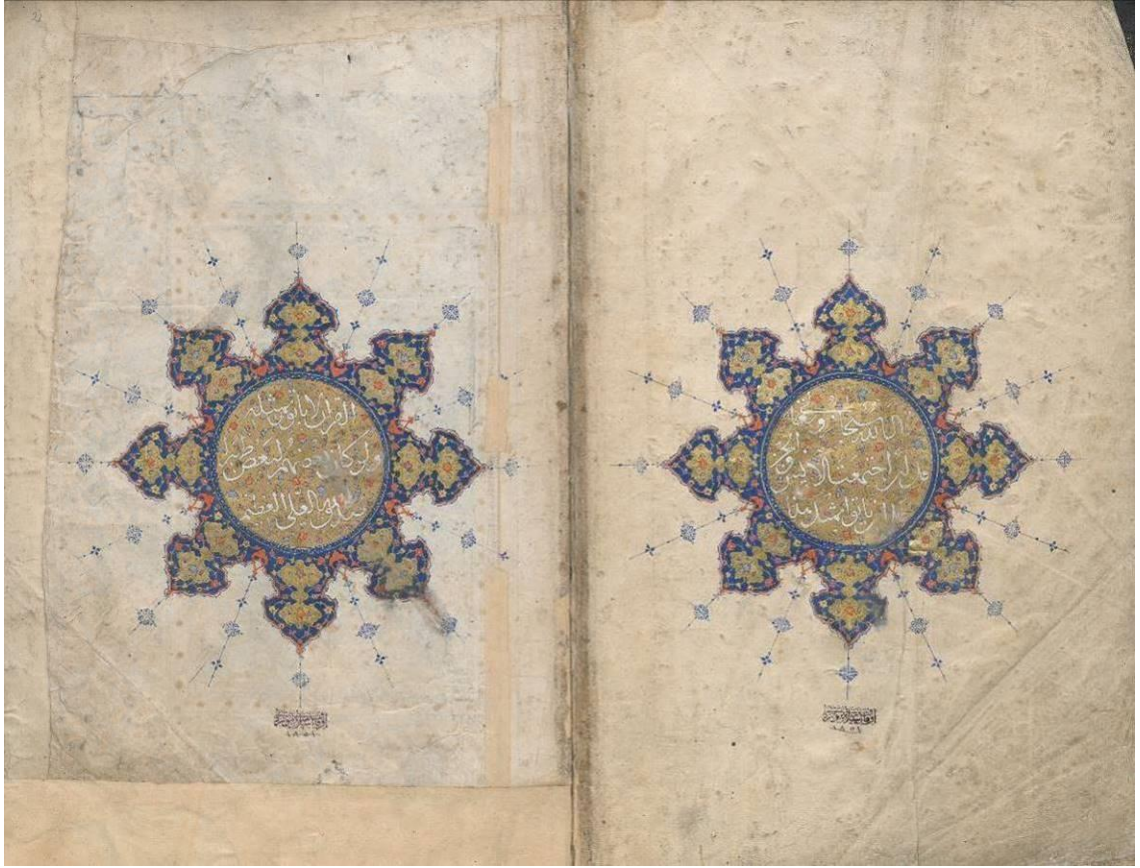 قال الله سبحانه وتعالى
قل لئن اجتمعت الانس والجن
على ان ياتوا بمثل هذا
القران لا ياتون بمثله
ولو كان بعضهم لبعض ظهيرا
صدق الله العلي العظيم